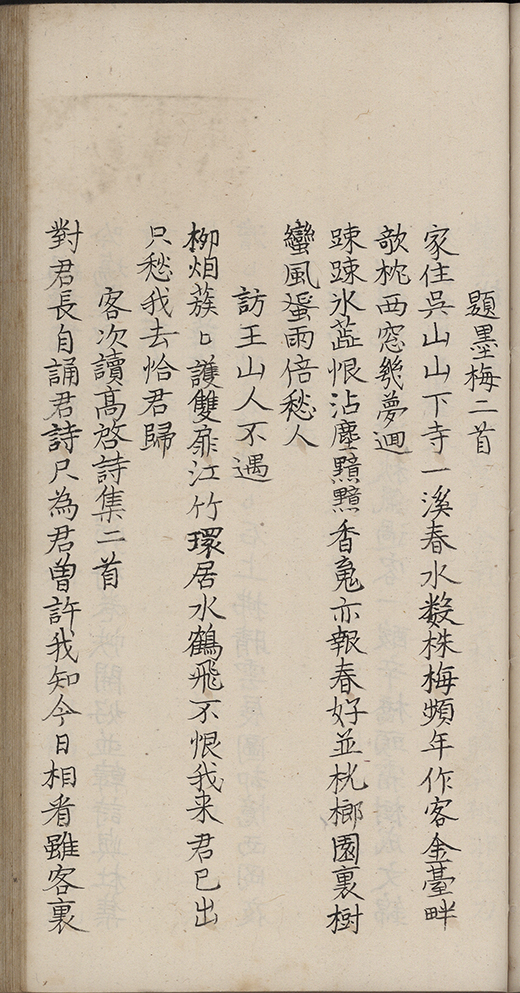 題墨梅二首
家住吳山山下寺一溪春水数株梅頻年作客金臺畔
欹枕西窓幾夢迴
踈踈氷蘂恨沾塵黯黯香䰟亦報春好並桄榔園裏樹
蠻風蜑雨倍愁人
訪王山人不遇
柳烟蔟〻護雙扉江竹環居水鶴飛不恨我来君已出
只愁我去恰君歸
客次讀髙啓詩集二首
對君長自誦君詩尺為君曽許我知今日相看雖客裏